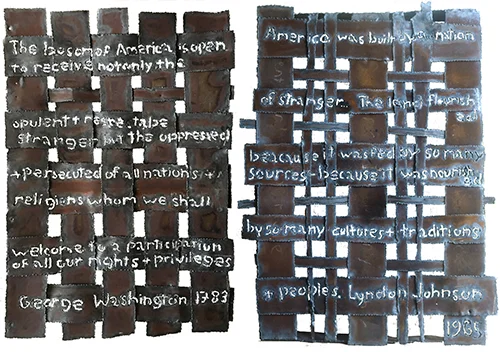 The bosom of America is open
to receive not only the
opulent + respe.table
stranger but the oppressed
+ persecuted of all nations +
religions whom we shall
welcome to a participation
of all our rights + privileges
George Washington 1783
America was built by a nation
of stranger.. The land flourish
ed
because it was fed by so many
sources - because it was nourish
ed
by so many cultures + traditions
+ peoples. Lyndon Johnson
1965